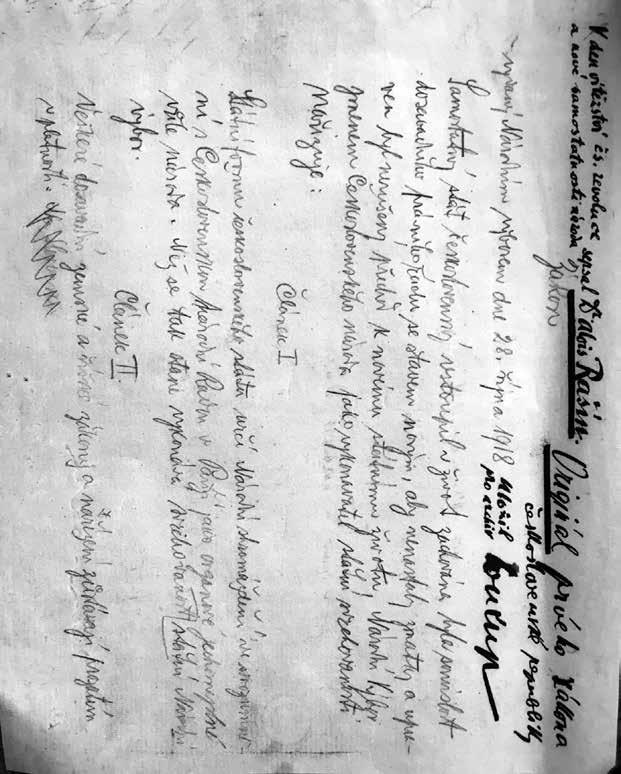 K den vítězství čs. revoluce sepsal Dr Alois Rašín. Originál prvého zákona
a nové samostatnosti národa
československé republiky
zákon
uložil
pro archiv Soukup
vydaný Národním výborem dne 28. října 1918
Samostatný stát československý vstoupil v život. Zachována byla souvislost
dosavadního právního řádu se stavem novým, aby nenastaly zmatky a upra-
ven byl nerušený přechod k novému státnímu životu. Národní Výbor
jménem Československého národa jako vykonavatel státní svrchovanosti
nařizuje:
Článek I.
Státní formu československého státu určí Národní shromáždění ve srozumě-
ní s Československou Národní Radou v Paříži jako orgánové jednomyslné
vůle národa. Než se tak stane vykonává svrchovanost státní Národní
výbor.
Článek II.
Veškeré dosavadní zemské a říšské zákony a nařízení zůstávají prozatím
v platnosti.